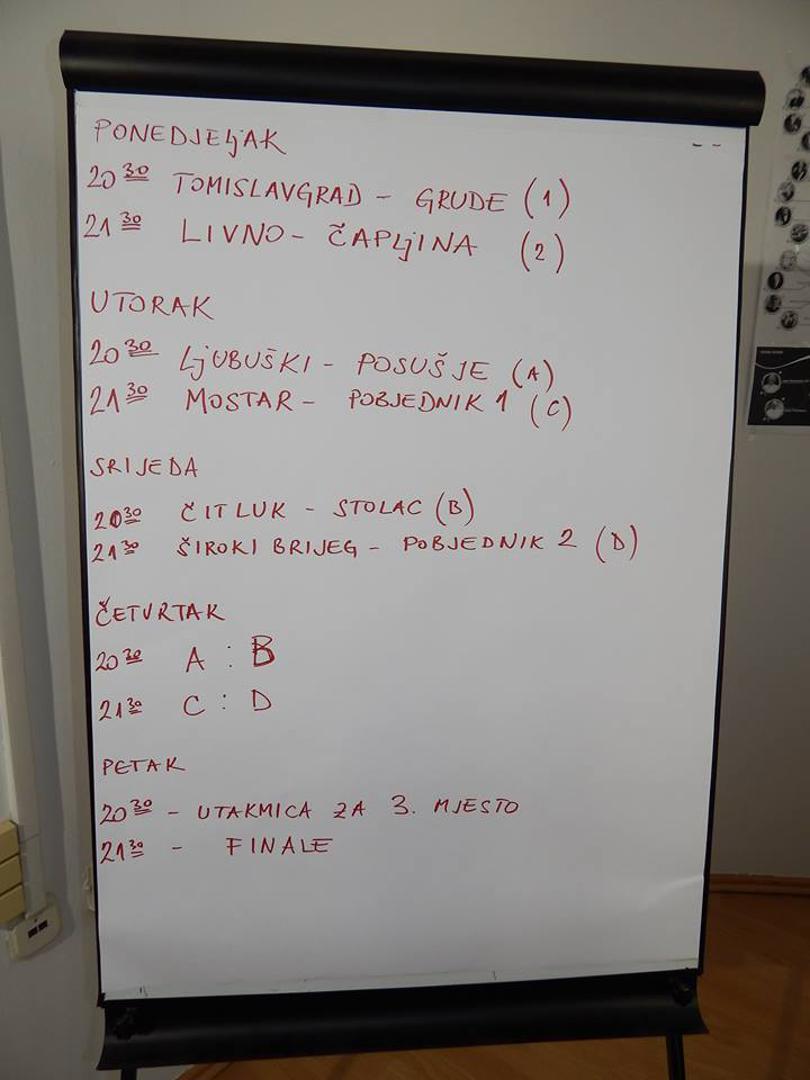 PONEDJELJAK
20³⁰ TOMISLAVGRAD - GRUDE (1)
21³⁰ LIVNO - ČAPLJINA (2)
UTORAK
20³⁰ LJUBUŠKI - POSUŠJE (A)
21³⁰ MOSTAR - POBJEDNIK 1 (C)
SRIJEDA
20³⁰ ČITLUK - STOLAC (B)
21³⁰ ŠIROKI BRIJEG - POBJEDNIK 2 (D)
ČETVRTAK
20³⁰ A : B
21³⁰ C : D
PETAK
20³⁰ - UTAKMICA ZA 3. MJESTO
21³⁰ - FINALE